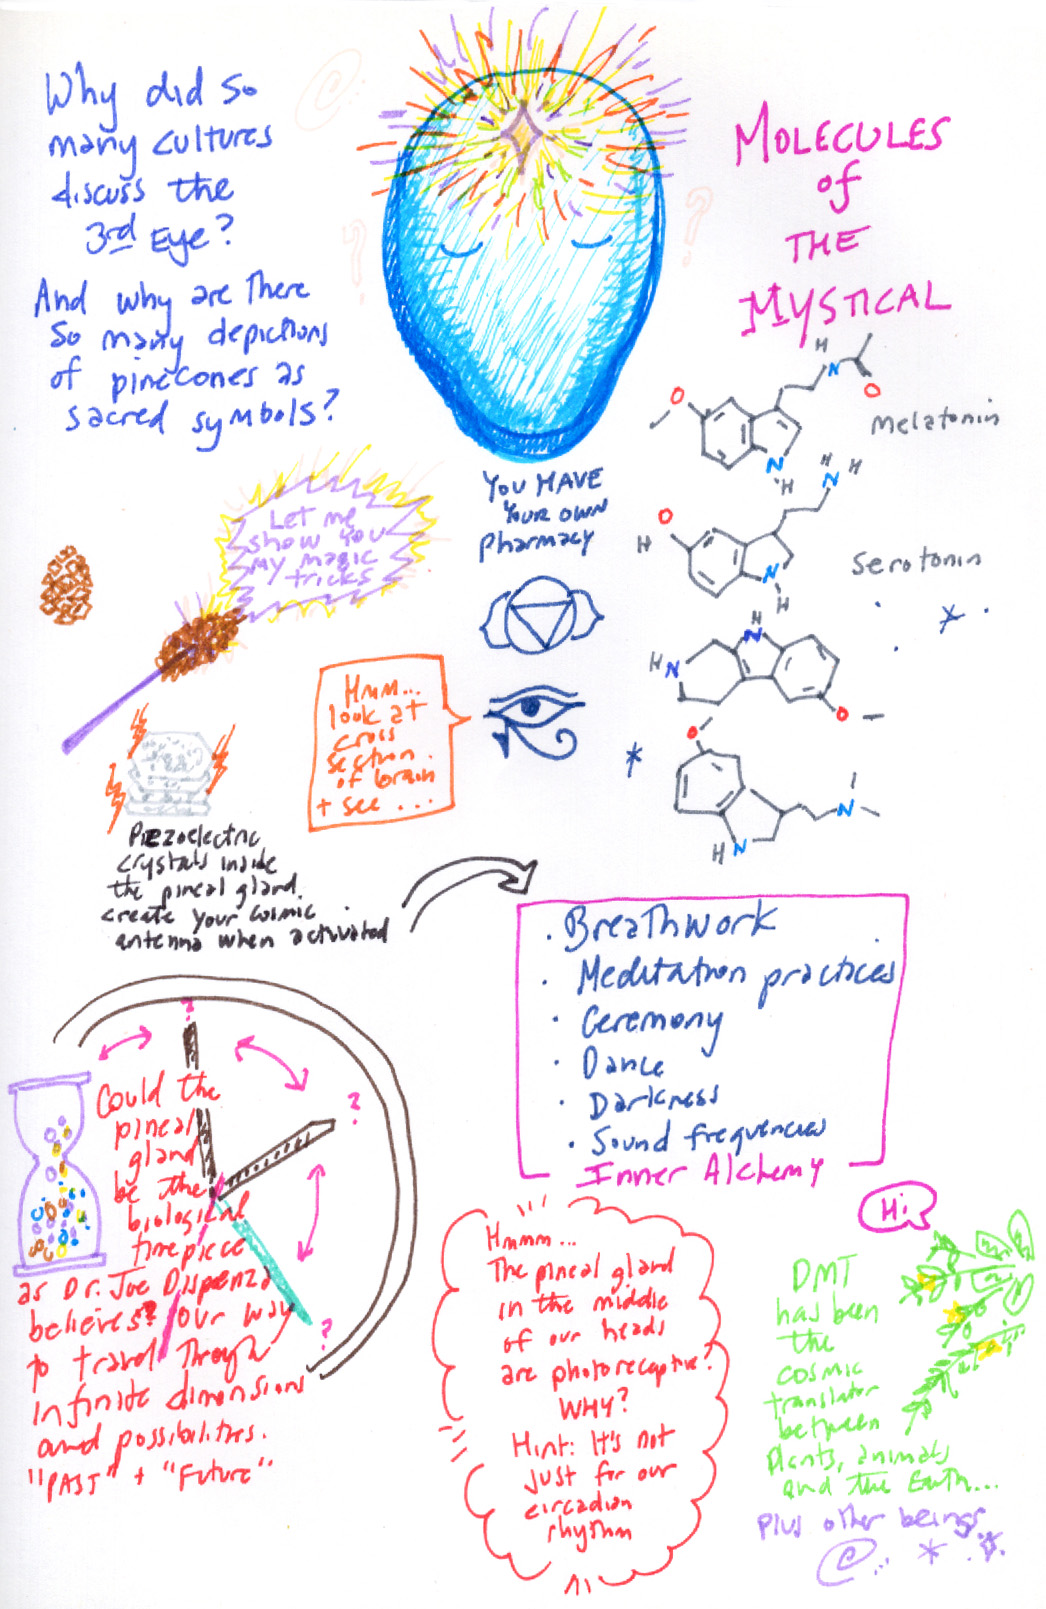 Why did so
many cultures
discuss the
3rd Eye?
And why are there
so many depictions
of pinecones as
sacred symbols?
MOLECULES
of
THE
MYSTICAL
H
N
O
O
Melatonin
N
H
YOU HAVE
YOUR OWN
Pharmacy
Let me
show you
my magic
tricks
H H
N
O
H
Serotonin
N
H
H
N
H N
O
O
N
H N
Hmm...
look at
cross
section
of brain
+ see ...
Piezoelectric
crystals inside
the pineal gland
create your cosmic
antenna when activated
. Breathwork
. Meditation practices
. Ceremony
. Dance
. Darkness
. Sound frequencies
Inner Alchemy
?
?
?
Could the
pineal
gland
be the
biological
timepiece
as Dr. Joe Dispenza
believes? Our way
to travel through
infinite dimensions
and possibilities.
"PAST" + "Future"
Hmmm...
The pineal gland
in the middle
of our heads
are photoreceptive?
WHY?
Hint: It's not
just for our
circadian
rhythm
Hi
DMT
has been
the
cosmic
translator
between
Plants, animals
and the Earth...
Plus other beings